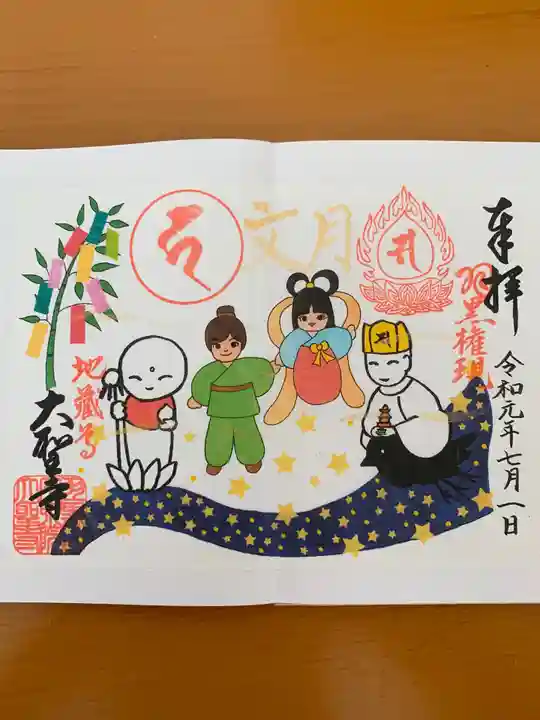 奉拝
羽黒権現
令和元年七月一日
文月
地蔵尊
大聖寺